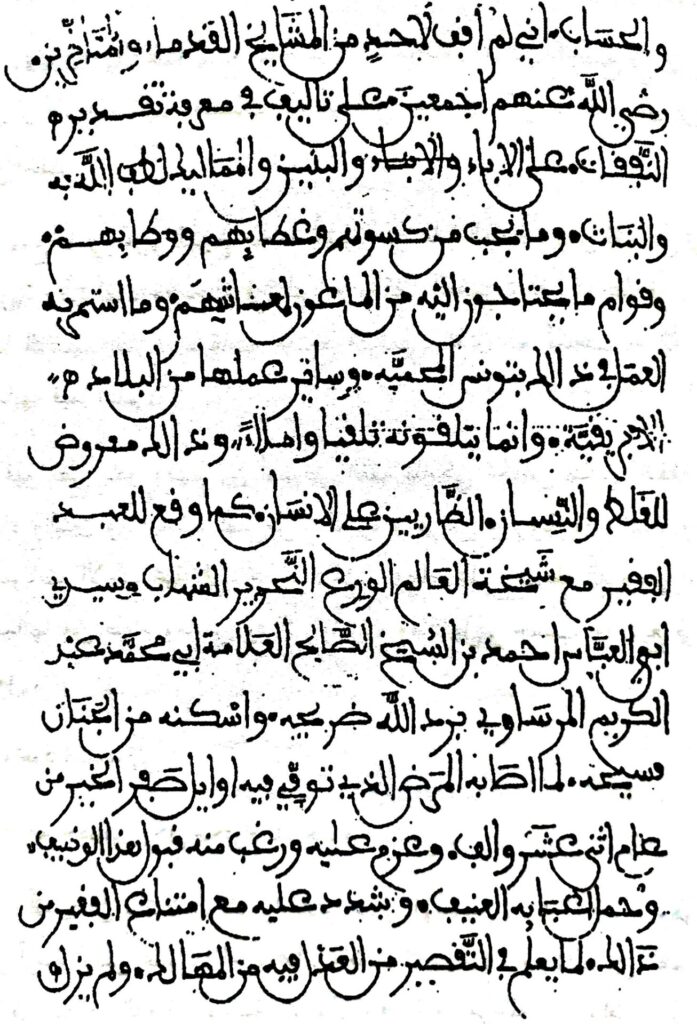 والحساب، اني لم أقف لاحد من المشايخ القدماء والمتأخرين
رضي اللّه عنهم اجمعين على تاليف في معرفة تقدير
النَّفقات على الاباء والابناء والبنين والمماليك لطف اللّه به
والبنات وما يجب من كسوتهم وغطايهم ووطايهم
وقوام ما يحتاجون اليه من الماعون لمعاشهم وما استمر به
العمل في ذالك بتونس المحميّه وساير عملها من البلاد
الافريقيّة وانما يتلقونه تلقيا واملاءً وذالك معروض
للغلط والنّسيان الطَّاريين على الانسان كما وقع للعبد
الفقير مع شيخه العالم الورع النّحرير الشهاب سيدي
ابو العبّاس احمد بن الشيخ الصّالح العلامة ابي محمّد عبد
الكريم المرساوي برد اللّه ضريحه واسكنه من الجنان
فسيحه لما اصابه المرض الذي توفّي فيه اوايل صفر الخير من
عام اثنى عشر والف وعزم عليه ورغب منه قبول هذا
وحمل العنيف وشدد عليه مع امتناع الفقير من
ذالك لما يعلم في التّقصير من العمل فيه من المهالك ولم يزل